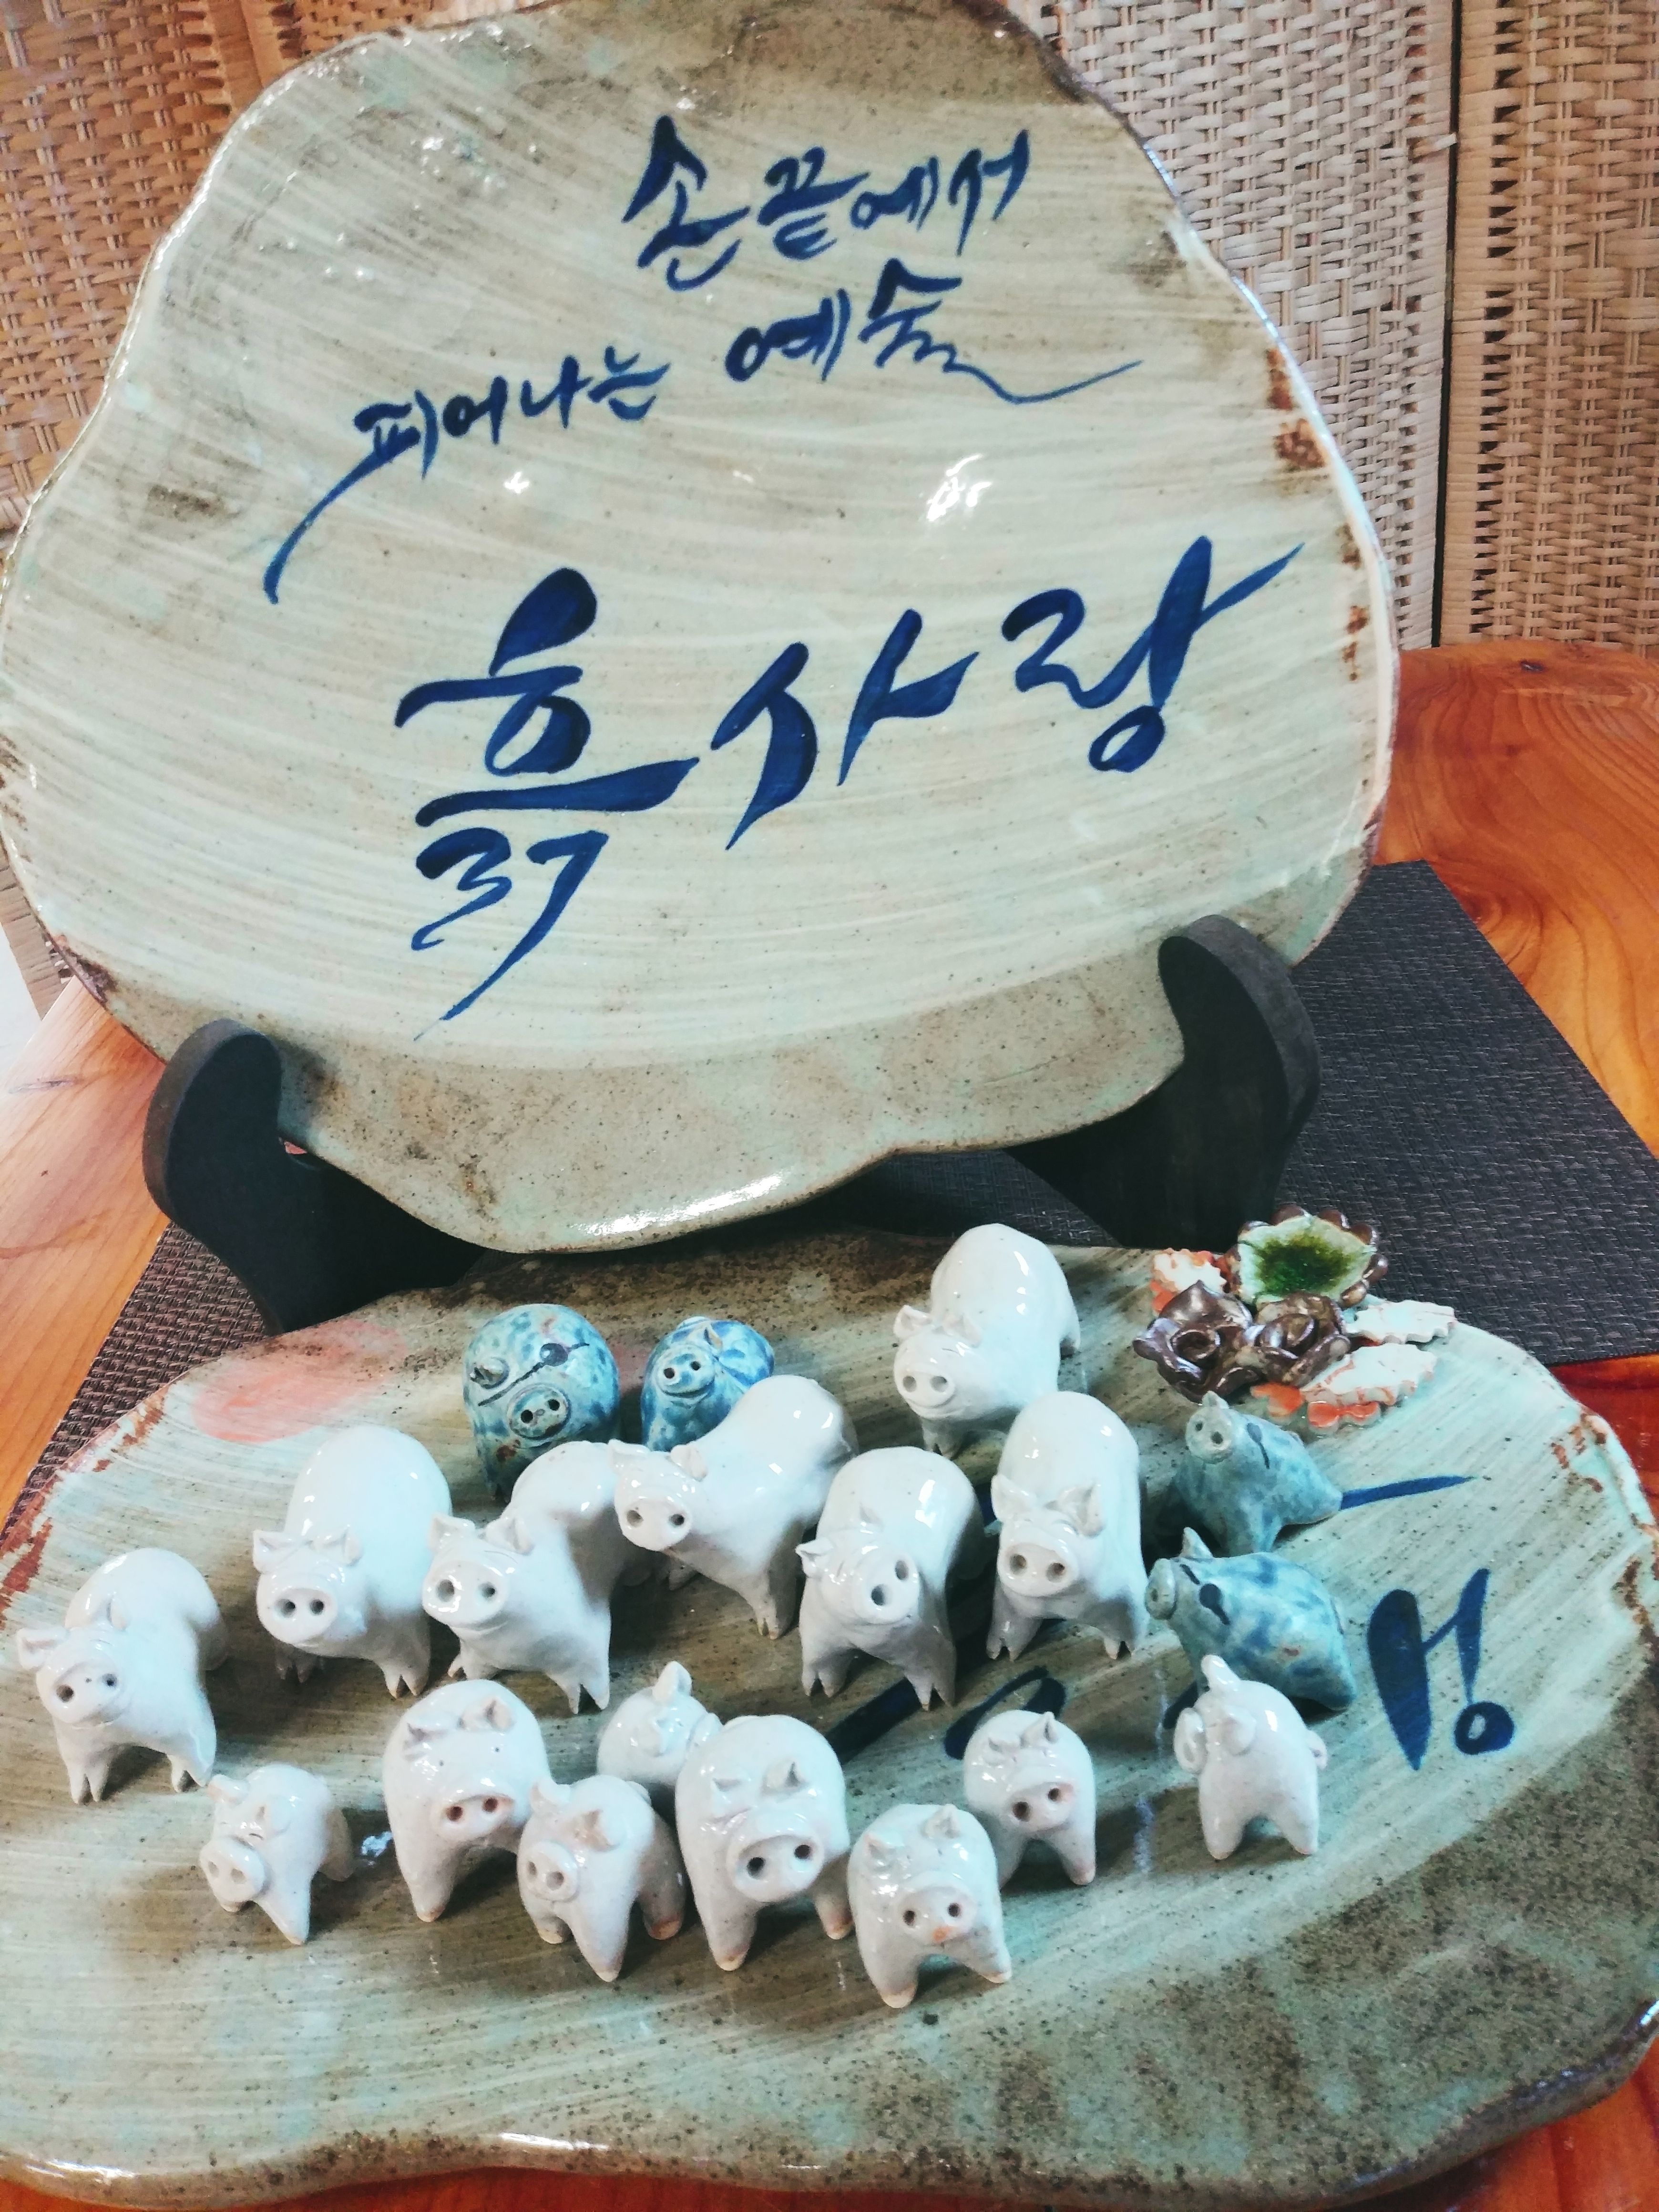 손끝에서
피어나는 예술
흙사랑